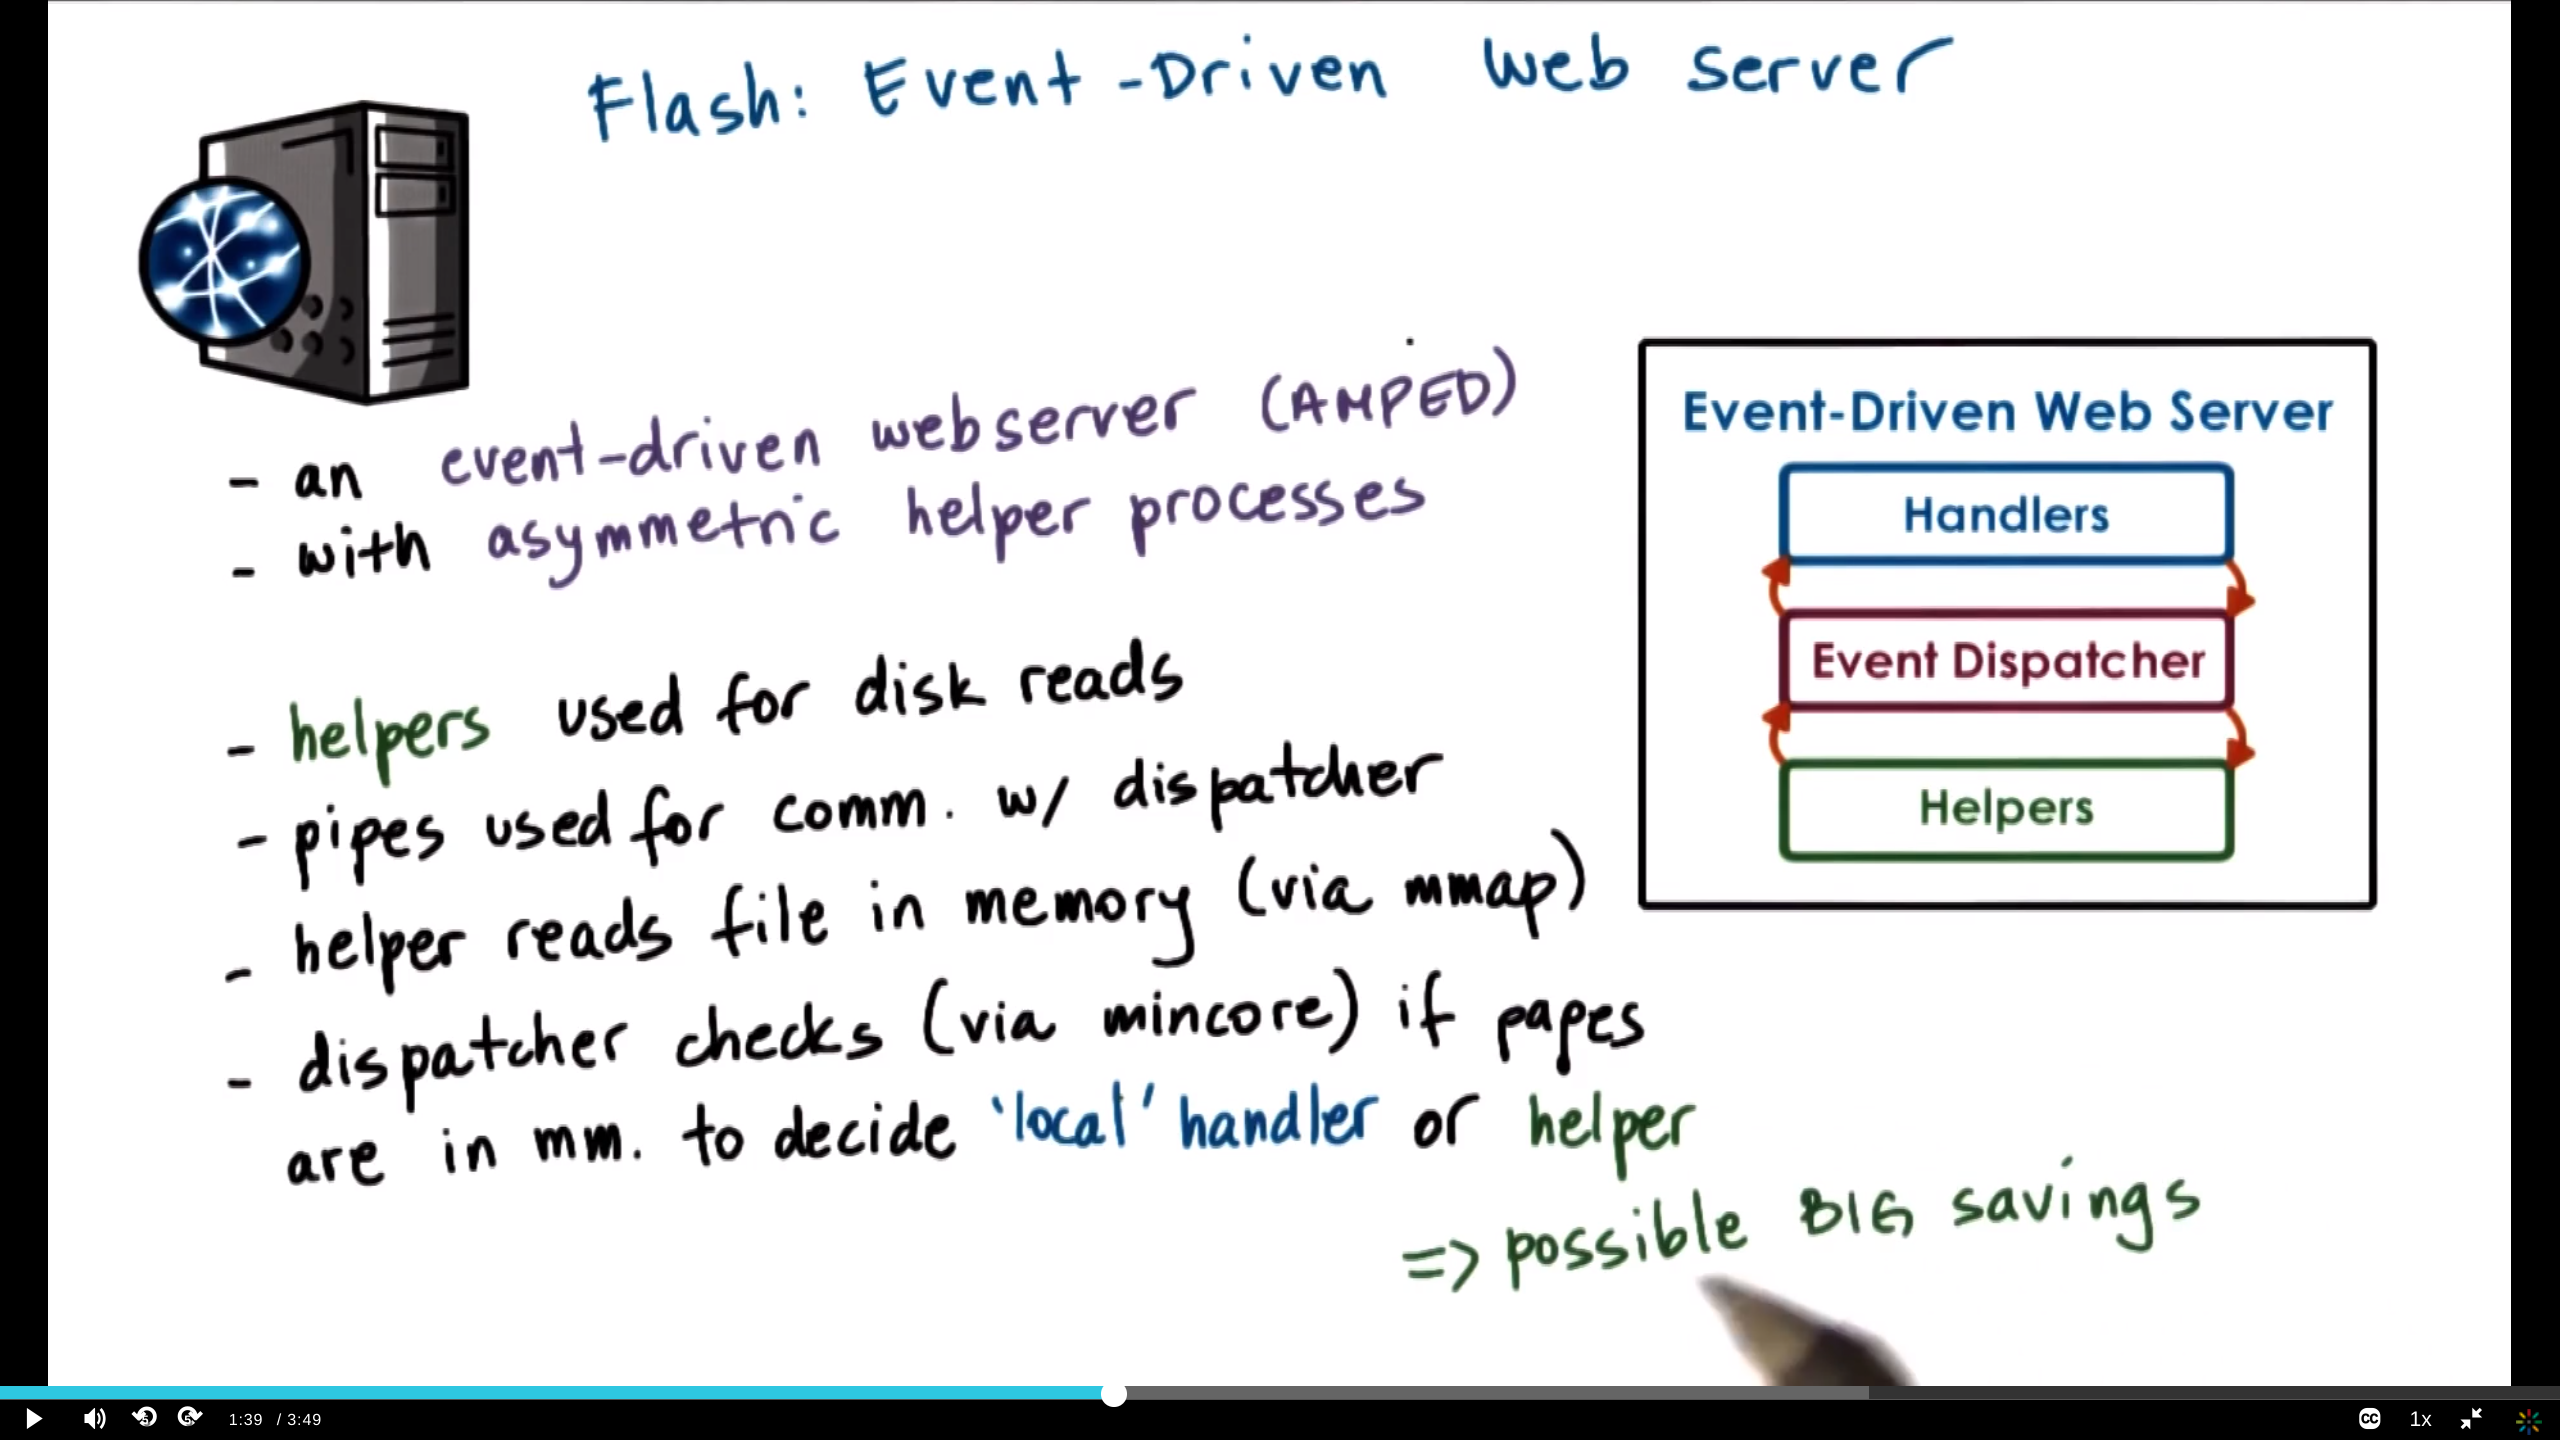 Flash: Event-Driven Web Server
- an event-driven webserver (AMPED)
- with asymmetric helper processes
- helpers used for disk reads
- pipes used for comm. w/ dispatcher
- helper reads file in memory (via mmap)
- dispatcher checks (via mincore) if pages
are in mm. to decide 'local' handler or helper
=> possible BIG savings
Event-Driven Web Server
Handlers
Event Dispatcher
Helpers
1:39 / 3:49
CC
1x